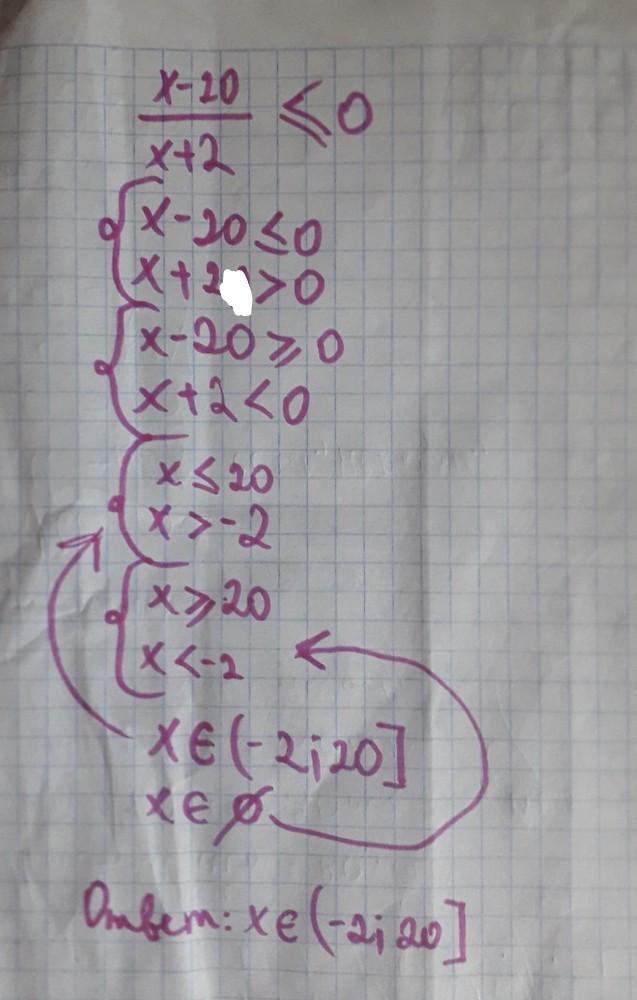 x-20
x+2
≤ 0
x-20 ≤ 0
x+2 > 0
x-20 ≥ 0
x+2 < 0
x ≤ 20
x > -2
x ≥ 20
x < -2
x ∈ (-2; 20]
x ∈ ∅
Ответ: x ∈ (-2; 20]